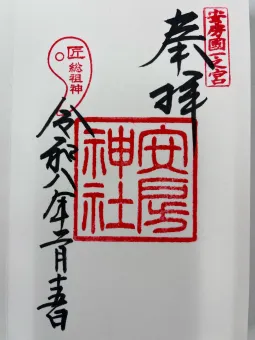 安房國一之宮
奉拝
安房神社
匠総祖神
令和八年二月吉日